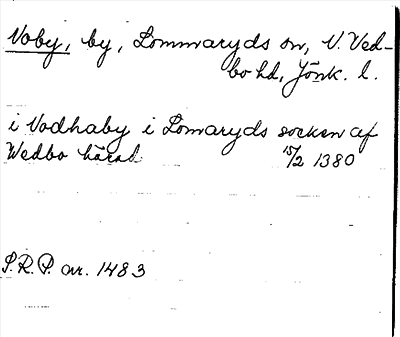 Voby, by, Lommaryds sn, V. Ved-
bo hd, Jönk. l.
i Vodhaby i Lomaryds socken af
Wedbo härad 15/2 1380
S.R.P. nr. 1483